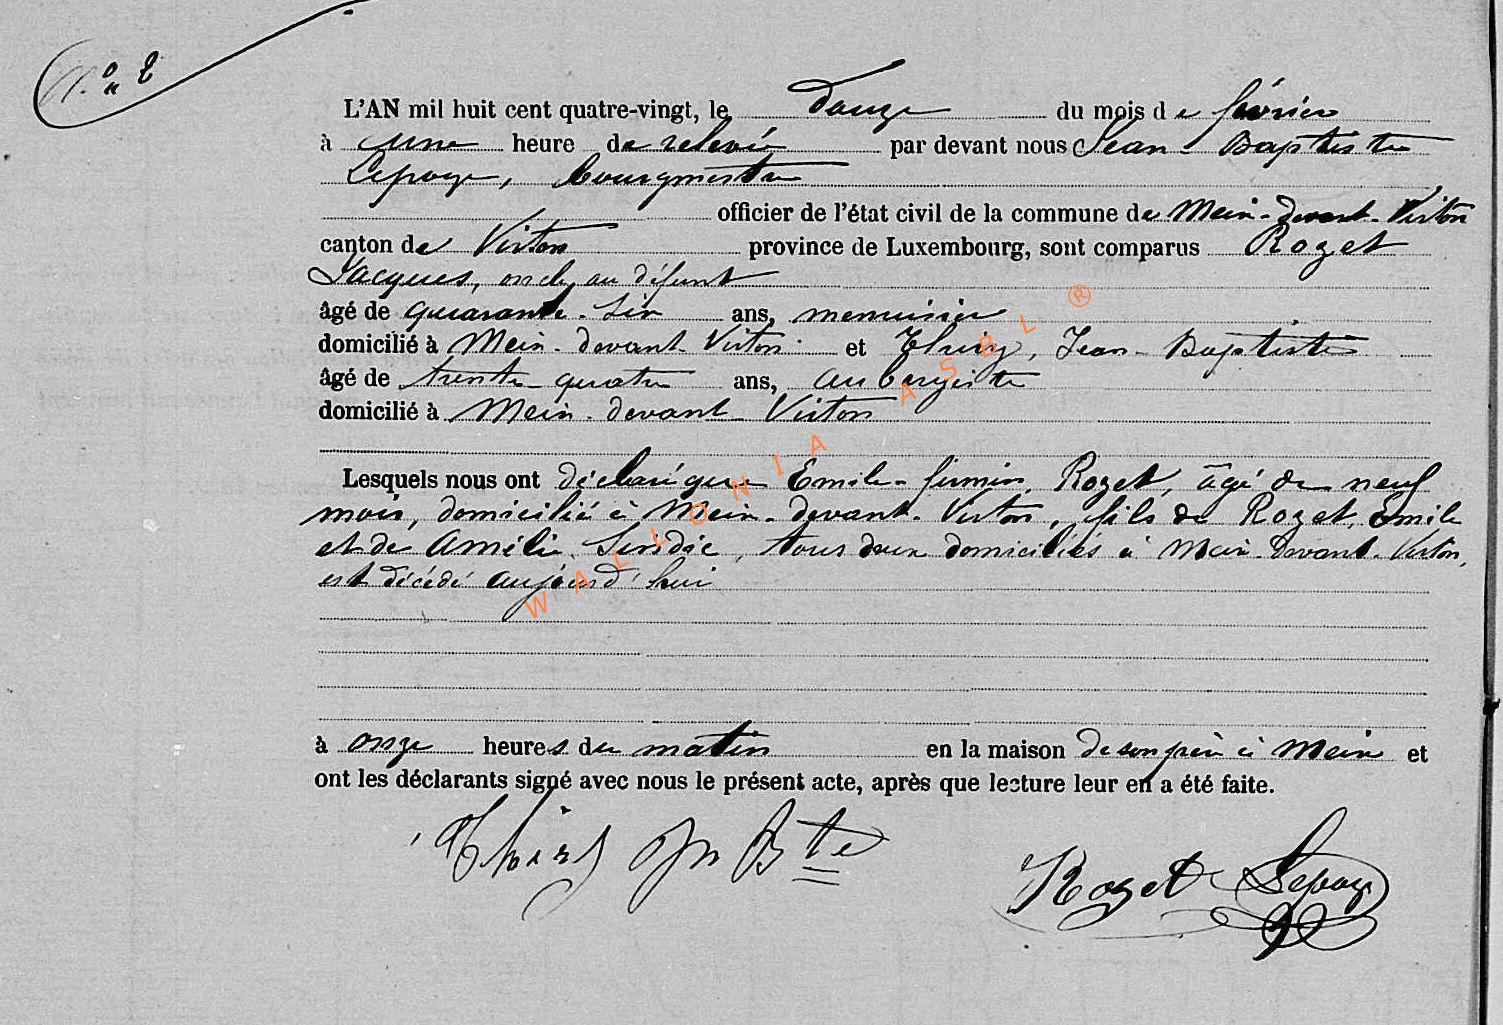 N.º 2
L'AN mil huit cent quatre-vingt, le Douze du mois de février
à une heure de relevée par devant nous Jean-Baptiste
Lepage, bourgmestre
officier de l'état civil de la commune de Meix-devant-Virton
canton de Virton province de Luxembourg, sont comparus Rozet
Jacques, oncle au défunt
âgé de quarante-six ans, menuisier
domicilié à Meix-devant-Virton et Thiry, Jean-Baptiste
âgé de trente-quatre ans, aubergiste
domicilié à Meix-devant-Virton
Lesquels nous ont déclaré que Emile-firmin Rozet, âgé de neuf
mois, domicilié à Meix-devant-Virton, fils de Rozet, Emile
et de Amélie, tous deux domiciliés à Meix-devant-Virton,
est décédé aujourd'hui
à onze heures du matin en la maison de son père à Meix et
ont les déclarants signé avec nous le présent acte, après que lecture leur en a été faite.
Thiry Jn Bte
Rozet Lepage
WALLONIA ASBL ®